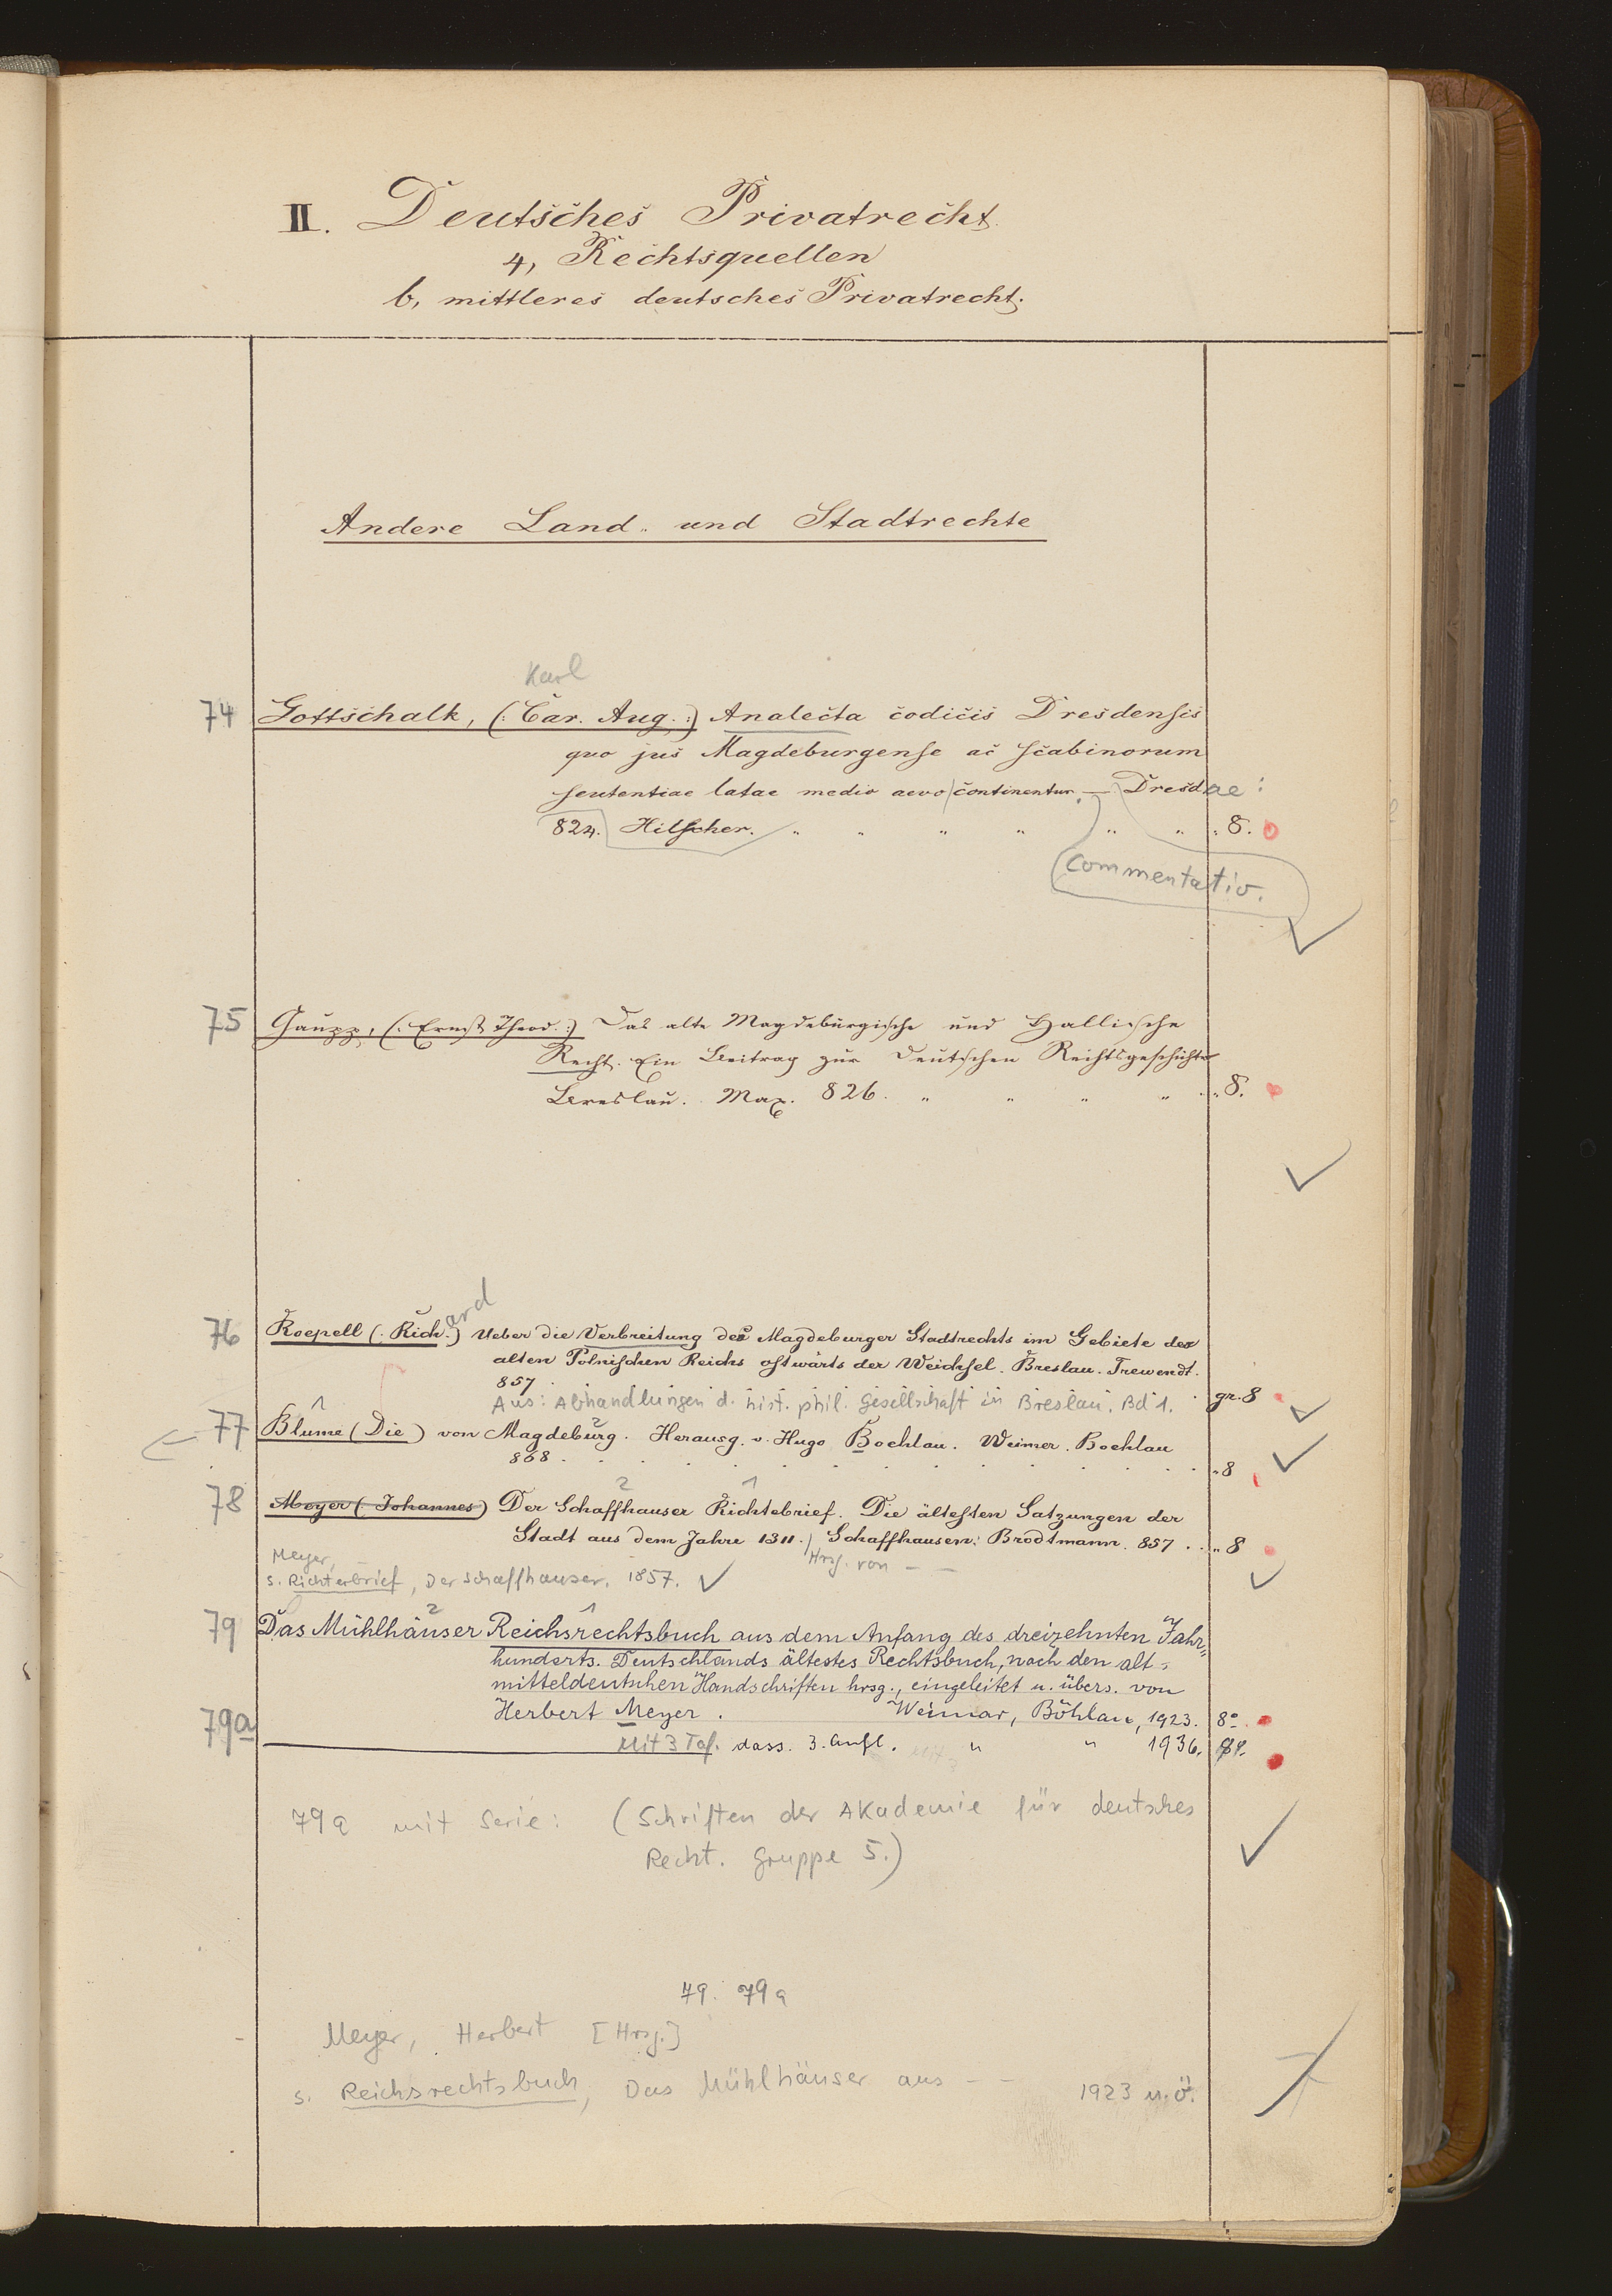 II. Deutsches Privatrecht.
4, Rechtsquellen
b, mittleres deutsches Privatrecht.
Andere Land- und Stadtrechte
Karl
74 Gottschalk, (: Car. Aug. :) Analecta codicis Dresdensis
quo jus Magdeburgense ac scabinorum
sententiae latae medio aevo continentur. — Dresdae:
824. Hilscher. " " " " " " " 8.
Commentatio.
75 Gaupp, (: Ernst Theod. :) Das alte Magdeburgische und Hallische
Recht. Ein Beitrag zur Deutschen Rechtsgeschichte
Breslau. Max. 826. " " " " " 8.
76 Roepell (: Richard) Ueber die Verbreitung des Magdeburger Stadtrechts im Gebiete des
alten Polnischen Reichs ostwärts der Weichsel. Breslau. Trewendt.
857
Aus: Abhandlungen d. hist. phil. Gesellschaft in Breslau. Bd 1. gr. 8
1 2
77 Blume (Die) von Magdeburg. Herausg. v. Hugo Boehlau. Weimar. Boehlau
868 . . . . . . . . . . . " 8
2 1
78 Meyer (Johannes) Der Schaffhauser Richtebrief. Die ältesten Satzungen der
Stadt aus dem Jahre 1311. / Schaffhausen: Brodtmann. 857 . . " 8
Meyer, Hrsg. von — —
s. Richterbrief, Der Schaffhauser. 1857.
2 1
79 Das Mühlhäuser Reichsrechtsbuch aus dem Anfang des dreizehnten Jahr-
hunderts. Deutschlands ältestes Rechtsbuch, nach den alt-
mitteldeutschen Handschriften hrsg., eingeleitet u. übers. von
Herbert Meyer. Weimar, Böhlau, 1923. 8°.
79a Mit 3 Taf. dass. 3. Aufl. " " 1936.
79a mit Serie: (Schriften der Akademie für deutsches
Recht. Gruppe 5.)
79. 79a
Meyer, Herbert [Hrsg.]
s. Reichsrechtsbuch, Das Mühlhäuser aus — — 1923 u. ö.